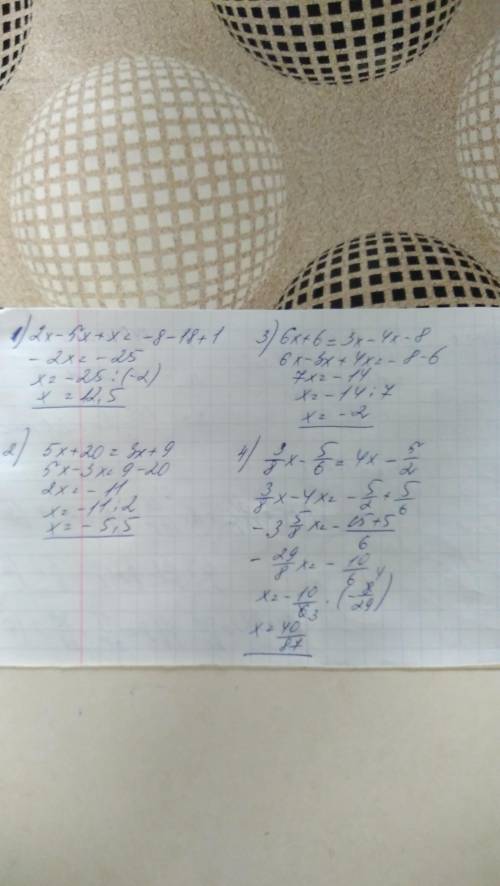 1) 2x-5x+x=-8-18+1
-2x=-25
x=-25:(-2)
x=12,5
2) 5x+20=3x+9
5x-3x=9-20
2x=-11
x=-11:2
x=-5,5
3) 6x+6=3x-4x-8
6x-3x+4x=-8-6
7x=-14
x=-14:7
x=-2
4) 3/8x-5/6=4x-5/2
3/8x-4x=-5/2+5/6
-3 5/8x=-15+5/6
-29/8x=-10/6
x=-10/6 3·(-8 4/29)
x=40/87